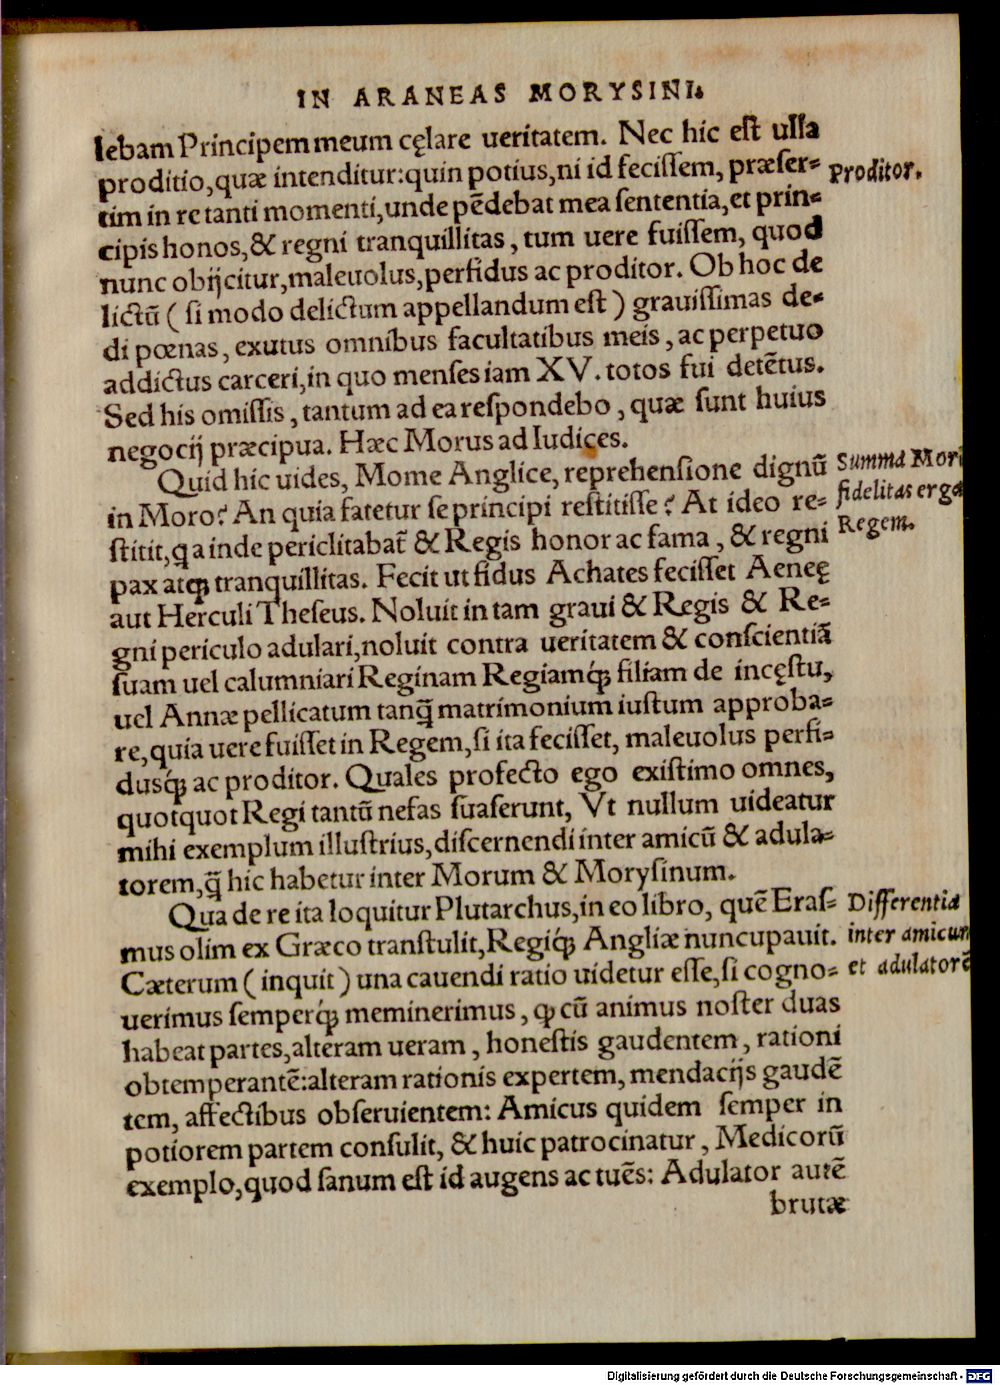 IN ARANEAS MORYSINI.
lebam Principem meum cęlare ueritatem. Nec hic eſt ulla
proditio,quæ intenditur:quin potius,ni id feciſſem, præſer-
tim in re tanti momenti,unde pēdebat mea ſententia,et prin-
cipis honos,& regni tranquillitas, tum uere fuiſſem, quod
nunc obijcitur,maleuolus,perfidus ac proditor. Ob hoc de
lictū ( ſi modo delictum appellandum eſt ) grauiſſimas de-
di pœnas, exutus omnibus facultatibus meis, ac perpetuo
addictus carceri,in quo menſes iam XV. totos fui detētus.
Sed his omiſſis, tantum ad ea reſpondebo, quæ ſunt huius
negocij præcipua. Hæc Morus ad Iudices.
Proditor.
Quid hic uides, Mome Anglice, reprehenſione dignū
in Moro? An quia fatetur ſe principi reſtitiſſe? At ideo re-
ſtitit, ꝗa inde periclitabat̃ & Regis honor ac fama, & regni
pax atqꝫ tranquillitas. Fecit ut fidus Achates feciſſet Aeneę
aut Herculi Theſeus. Noluit in tam graui & Regis & Re-
gni periculo adulari,noluit contra ueritatem & conſcientiā
ſuam uel calumniari Reginam Regiamqꝫ filiam de incęſtu,
uel Annæ pellicatum tanq̃ matrimonium iuſtum approba-
re,quia uere fuiſſet in Regem,ſi ita feciſſet, maleuolus perfi-
dusqꝫ ac proditor. Quales profecto ego exiſtimo omnes,
quotquot Regi tantū nefas ſuaſerunt, Vt nullum uideatur
mihi exemplum illuſtrius,diſcernendi inter amicū & adula-
torem,q̃ hic habetur inter Morum & Moryſinum.
Summa Mori
fidelitas erga
Regem.
Qua de re ita loquitur Plutarchus,in eo libro, quē Eraſ-
mus olim ex Græco tranſtulit,Regiqꝫ Angliæ nuncupauit.
Cæterum ( inquit ) una cauendi ratio uidetur eſſe,ſi cogno-
uerimus ſemperqꝫ meminerimus, ꝙ cū animus noſter duas
habeat partes,alteram ueram, honeſtis gaudentem, rationi
obtemperantē:alteram rationis expertem, mendacijs gaudē
tem, affectibus obſeruientem: Amicus quidem ſemper in
potiorem partem conſulit, & huic patrocinatur, Medicorū
exemplo,quod ſanum eſt id augens ac tuēs: Adulator autē
brutæ
Differentia
inter amicum
et adulatorē
Digitalisierung gefördert durch die Deutsche Forschungsgemeinschaft - DFG